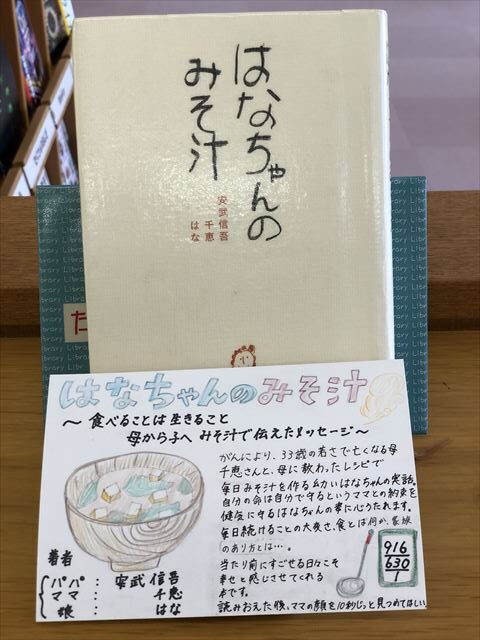 はなちゃんの
みそ汁
安武信吾
千恵
はな
Library Library Library
た
はなちゃんのみそ汁
～食べることは生きること
母から子へ みそ汁で伝えたメッセージ～
がんにより、33歳の若さで亡くなる母
千恵さんと、母に教わったレシピで
毎日みそ汁を作る幼いはなちゃんの実話。
自分の命は自分で守るというママとの約束を
健気に守るはなちゃんの姿に心うたれます。
毎日続けることの大変さ、食とは何か、家族
のあり方とは…。
当たり前にすごせる日々こそ
幸せと感じさせてくれる
本です。
読みおえた後、ママの顔を10秒じっと見つめてほしい
著者
パパ：安武 信吾
ママ：千恵
娘：はな
916
630
1